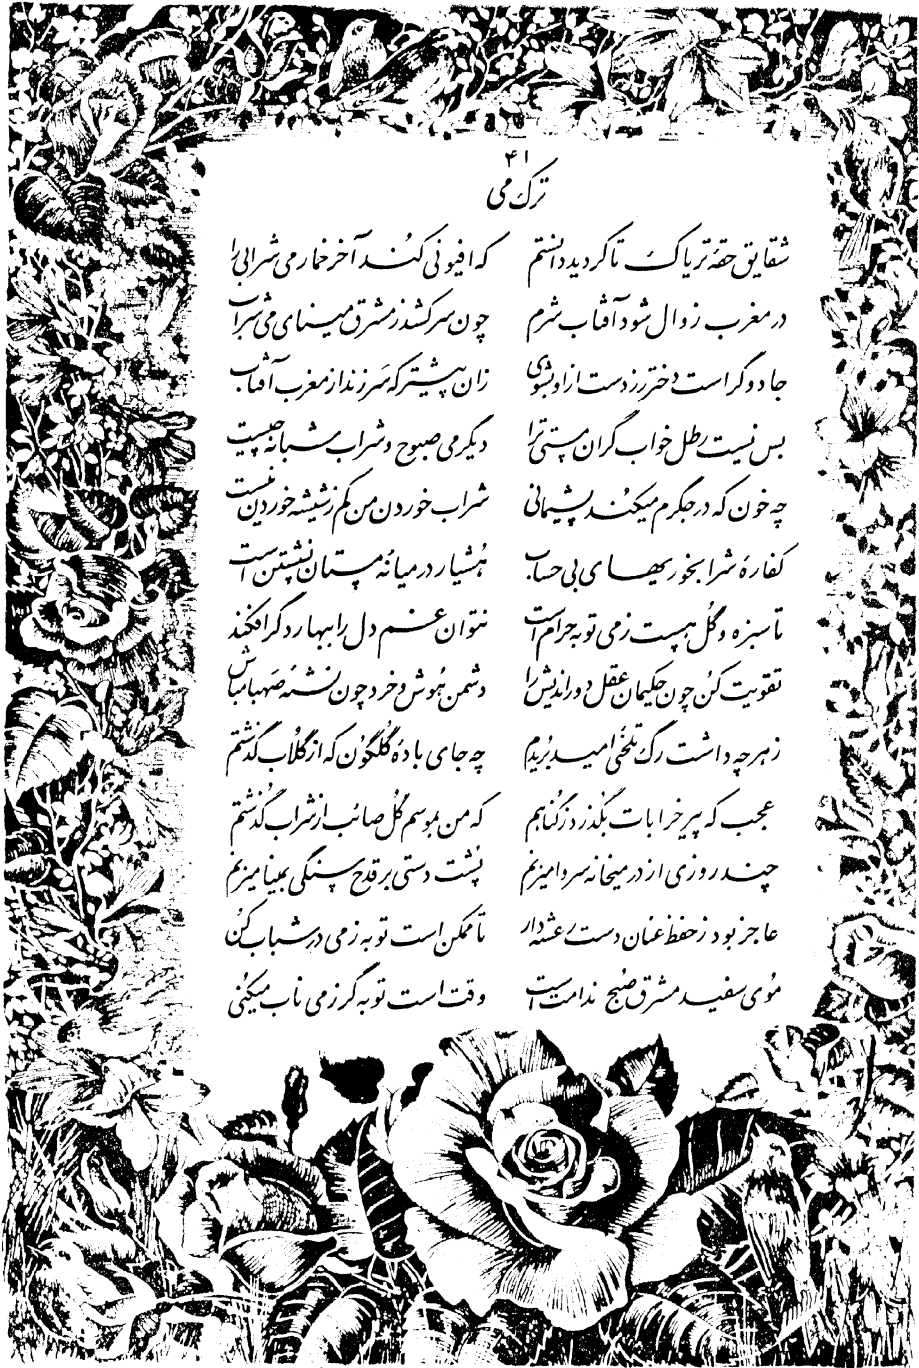 ۴۱
ترک می
شقایق حقهٔ تریاک تا گردید دانستم که افیونی کند آخر خمار می شرابی را
در مغرب زوال شود آفتاب شرم چون سرکشد ز مشرق مینای می شراب
جادوگر است دختر رز دست ازو بشوی زان پیشتر که سر زند از مغرب آفتاب
بس نیست رطل خواب گران مستی ترا دیگر می صبوح و شراب شبانه چیست
چه خون که در جگرم میکند پشیمانی شراب خوردن من کم ز شیشه خوردن نیست
کفارهٔ شرابخوریهای بی حساب هشیار در میانهٔ مستان نشستن است
تا سبزه و گل هست ز می توبه حرام است نتوان غم دل را ببهار دگر افکند
تقویت کن چون حکیمان عقل دوراندیش را دشمن هوش و خرد چون نشئه صهبا مباش
ز هرچه داشت رگ تلخی امید بریدم چه جای بادهٔ گلگون که از گلاب گذشتم
عجب که پیر خرابات بگذرد ز گناهم که من بموسم گل صائب از شراب گذشتم
چند روزی از در میخانه سر وامیزنم پشت دستی بر قدح سنگی بمینا میزنم
عاجز بود ز حفظ عنان دست رعشه دار تا ممکن است توبه ز می در شباب کن
موی سفید مشرق صبح ندامت است وقت است توبه گر ز می ناب میکنی